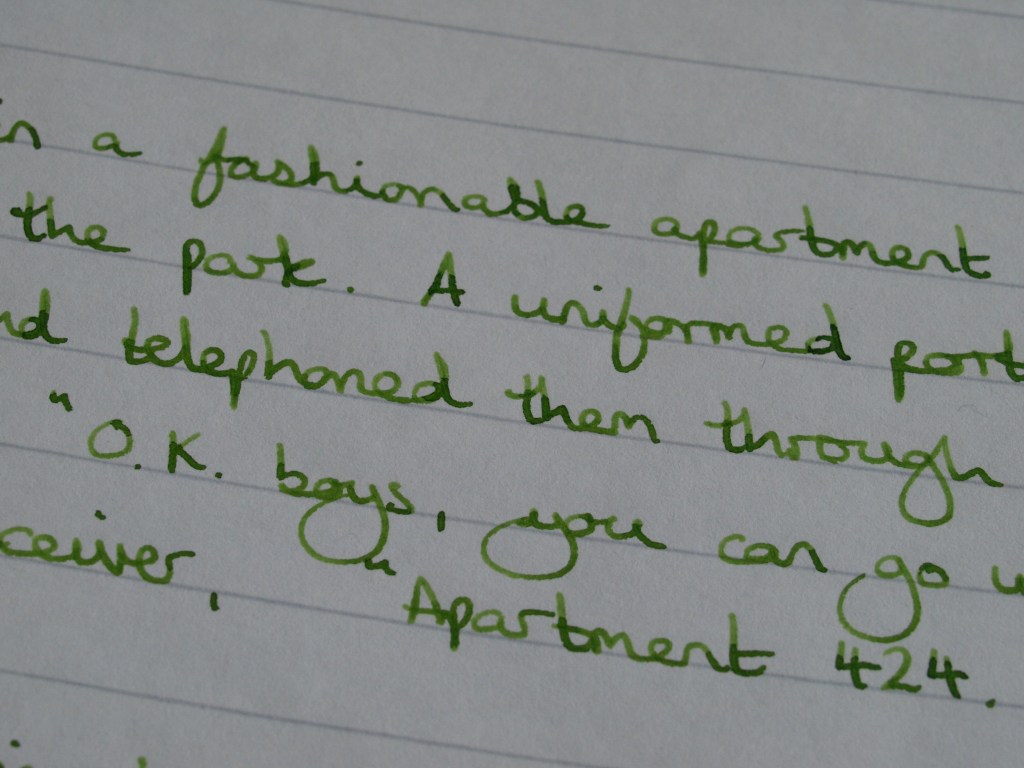 in a fashionable apartment
the park. A uniformed port
nd telephoned them through
"O.K. boys, you can go u
ceiver, "Apartment 424.